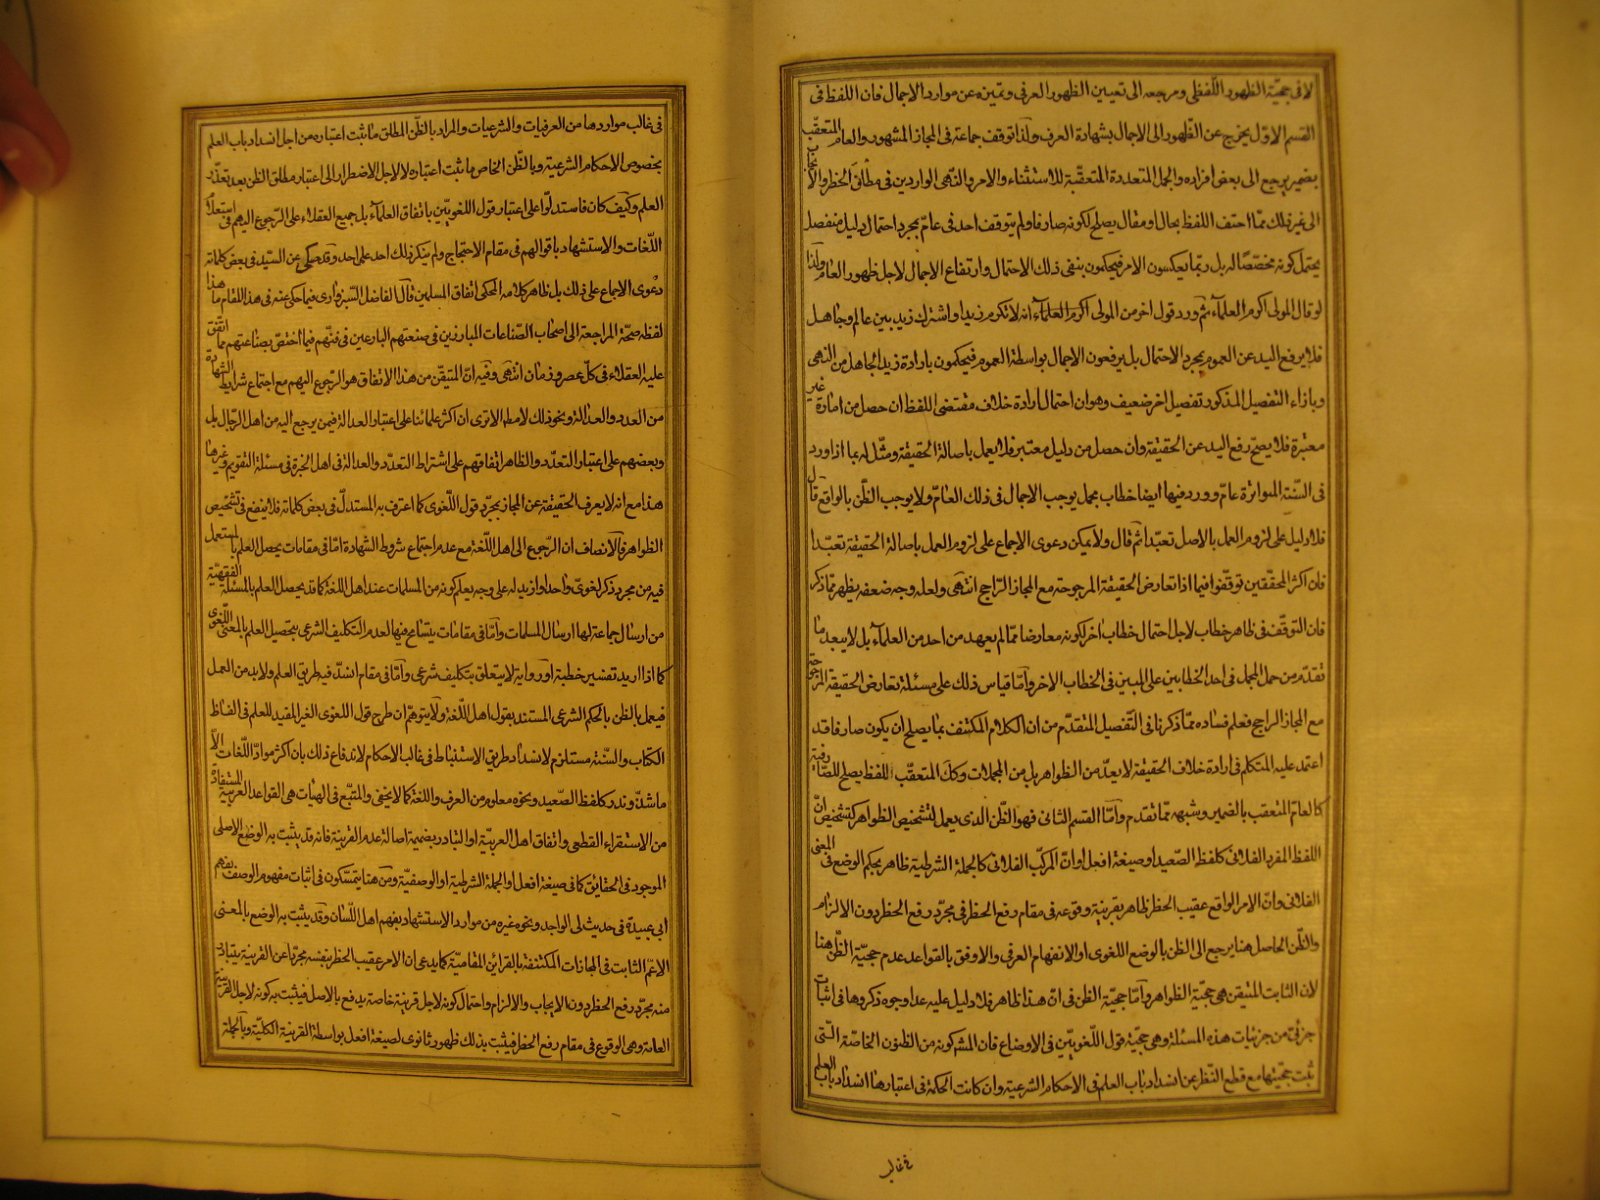 لا في حجيّة الظهور اللفظي ومرجعه الى تعيين الظهور العرفي وتميزه عن موارد الاجمال فان اللفظ في
القسم الاوّل يخرج عن الظهور الى الاجمال بشهادة العرف ولذا توقف جماعة في المجاز المشهور والعام المتعقّب
بضمير يرجع الى بعض افراده والجمل المتعددة المتعقّبة للاستثناء والامر والنهى الواردين في مظانّ الحظر والايجاب
الى غير ذلك ممّا احتف اللفظ بحال او مقال يصلح لكونه صارفا ولم يتوقف احد في عامّ بمجرد احتمال دليل منفصل
يحتمل كونه مخصّصا له بل ربّما يعكسون الامر فيحكمون بنفى ذلك الاحتمال وارتفاع الاجمال لاجل ظهور العام ولذا
لو قال المولى اكرم العلمآء ثم ورد قول اخر من المولى اكرم العلمآء انه لا تكرم زيدا واشترك زيد بين عالم وجاهل
فلا يرفع اليد عن العموم بمجرد الاحتمال بل يرفعون الاجمال بواسطة العموم فيحكمون بارادة زيد الجاهل من النهى
وبازاء التفصيل المذكور تفصيل اخر ضعيف وهو ان احتمال ارادة خلاف مقتضى اللفظ ان حصل من امارة غير
معتبرة فلا يصحّ رفع اليد عن الحقيقة وان حصل من دليل معتبر فلا يعمل باصالة الحقيقة ومثّل له بما اذا ورد
في السّنة المتواترة عامّ وورد فيها ايضا خطاب مجمل يوجب الاجمال في ذلك العامّ ولا يوجب الظّن بالواقع قال
فلا دليل على لزوم العمل بالاصل تعبّدا ثم قال ولا يمكن دعوى الاجماع على لزوم العمل باصالة الحقيقة تعبّدا
فان اكثر المحقّقين توقّفوا فيما اذا تعارض الحقيقة المرجوحة مع المجاز الرّاجح انتهى ولعله وجه ضعفه يظهر ممّا ذكر
فان التوقّف في ظاهر خطاب لاجل احتمال خطاب اخر لكونه معارضا ممّا لم يعهد من احد من العلمآء بل لا يبعد ما
تقدّم من حمل المجمل في احد الخطابين على المبين في الخطاب الاخر وامّا قياس ذلك على مسئلة تعارض الحقيقة المرجوحة
مع المجاز الراجح فعلم فساده ممّا ذكرنا في التّفصيل المتقدّم من ان الكلام المكتنف بما يصلح ان يكون صارفا قد
اعتمد عليه المتكلم في ارادة خلاف الحقيقة لا يعدّ من الظواهر بل من المجملات وكك المتعقّب بلفظ يصلح للصّارفية
كالعامّ المتعقب بالضمير وشبهه ممّا تقدم وامّا القسم الثانى فهو الظّن الذى يعمل لتشخيص الظواهر كتشخيص انّ
اللفظ المفرد الفلانى كلفظ الصّعيد او صيغة افعل او انّ المركّب الفلانى كالجملة الشرطية ظاهر بحكم الوضع في المعنى
الفلانى وانّ الامر الواقع عقيب الحظر ظاهر بقرينة وقوعه في مقام رفع الحظر في مجرّد رفع الحظر دون الالزام
والظّن الحاصل هنا يرجع الى الظن بالوضع اللغوى او الانفهام العرفى والاوفق بالقواعد عدم حجيّة الظّن هنا
لان الثابت المتيقن هي حجيّة الظواهر وامّا حجيّة الظن في انّ هذا ظاهر فلا دليل عليه عدا وجوه ذكروها في اثبات
جزئى من جزئيات هذه المسئلة وهى حجيّة قول اللّغويّين في الاوضاع فان المشهور كونه من الظنون الخاصّة التى
ثبت حجيتها مع قطع النّظر عن انسداد باب العلم في الاحكام الشرعيّة وان كانت الحكمة في اعتبارها انسداد باب العلم
في غالب
في غالب مواردها من العرفيات والشرعيات والمراد بالظّن المطلق ما ثبت اعتباره من اجل انسداد باب العلم
بخصوص الاحكام الشرعية وبالظّن الخاص ما ثبت اعتباره لا لاجل الاضطرار الى اعتبار مطلق الظن بعد تعذّر
العلم وكيف كان فاستدلّوا على اعتبار قول اللغويّين باتفاق العلمآء بل جميع العقلاء على الرّجوع اليهم في استعلام
اللّغات والاستشهاد باقوالهم في مقام الاحتجاج ولم ينكر ذلك احد على احد وقد حكى عن السيّد في بعض كلماته
دعوى الاجماع على ذلك بل ظاهر كلامه المحكى اتفاق المسلمين قال الفاضل السّبزوارى فيما حكى عنه في هذا المقام ما هذا
لفظه صحّة المراجعة الى اصحاب الصّناعات البارزين في صنعتهم البارعين في فنّهم فيما اختصّ بصناعتهم ممّا اتفق
عليه العقلاء في كلّ عصر وزمان انتهى وفيه انّ المتيقّن من هذا الاتفاق هو الرّجوع اليهم مع اجتماع شرايط الشهادة
من العدد والعدالة ونحو ذلك لا مطلقا الا ترى ان اكثر علمائنا على اعتبار العدالة فيمن يرجع اليه من اهل الرّجال بل
وبعضهم على اعتبار التعدّد والظاهر اتفاقهم على اشتراط التعدّد والعدالة في اهل الخبرة في مسئلة التقويم وغيرها
هذا مع انه لا يعرف الحقيقة عن المجاز بمجرّد قول اللّغوى كما اعترف به المستدلّ في بعض كلماته فلا ينفع في تشخيص
الظواهر فالانصاف ان الرّجوع الى اهل اللّغة مع عدم اجتماع شروط الشهادة امّا في مقامات يحصل العلم بالمستعمل
فيه من مجرد ذكر لغوىّ واحد او ازيد له على وجه يعلم كونه من المسلمات عند اهل اللغة كما قد يحصل العلم بالمسئلة الفقهيّة
من ارسال جماعة لها ارسال المسلمات وامّا في مقامات يتسامح فيها لعدم التكليف الشرعى بتحصيل العلم بالمعنى اللّغوى
كما اذا اريد تفسير خطبة او رواية لا يتعلق بتكليف شرعى وامّا في مقام انسدّ فيه طريق العلم ولا بد من العمل
فيعمل بالظن بالحكم الشرعى المستند بقول اهل اللّغة ولا يتوهّم ان طرح قول اللغوى الغير المفيد للعلم في الفاظ
الكتاب والسّنة مستلزم لانسداد طريق الاستنباط في غالب الاحكام لاندفاع ذلك بان اكثر موادّ اللّغات الّا
ما شذّ وندر كلفظ الصّعيد ونحوه معلوم من العرف واللغة كما لا يخفى والمتبّع في الهيات هي القواعد العربيّة المستفادة
من الاستقراء القطعى واتفاق اهل العربيّة او التبادر بضميمة اصالة عدم القرينة فانه قد يثبت به الوضع الاصلى
الموجود في الحقايق كما في صيغة افعل او الجملة الشرطية او الوصفيّة ومن هنا يتمسّكون في اثبات مفهوم الوصف بفهم
ابى عبيدة في حديث لى الواجد ونحوه غيره من موارد الاستشهاد بفهم اهل اللّسان وقد يثبت به الوضع بالمعنى
الاعمّ الثابت في المجازات المكتنفة بالقرائن المقاميّة كما يدعى ان الامر عقيب الحظر بنفسه مجرّدا عن القرينة يتبادر
منه مجرّد رفع الحظر دون الايجاب والالزام واحتمال كونه لاجل قرينة خاصة يدفع بالاصل فيثبت به كونه لاجل القرينة
العامة وهى الوقوع في مقام رفع الحظر فيثبت بذلك ظهور ثانوى لصيغة افعل بواسطة القرينة الكليّة وبالجملة